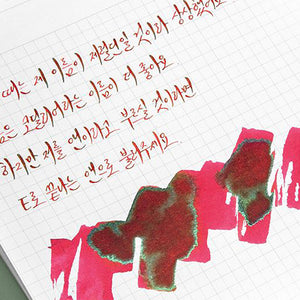 때는 제 이름이 제럴딘일 것이라 상상했어요
은 코딜리어라는 이름이 더 좋아요
하지만 저를 앤이라고 부르실 것이라면
E로 끝나는 앤으로 불러주세요